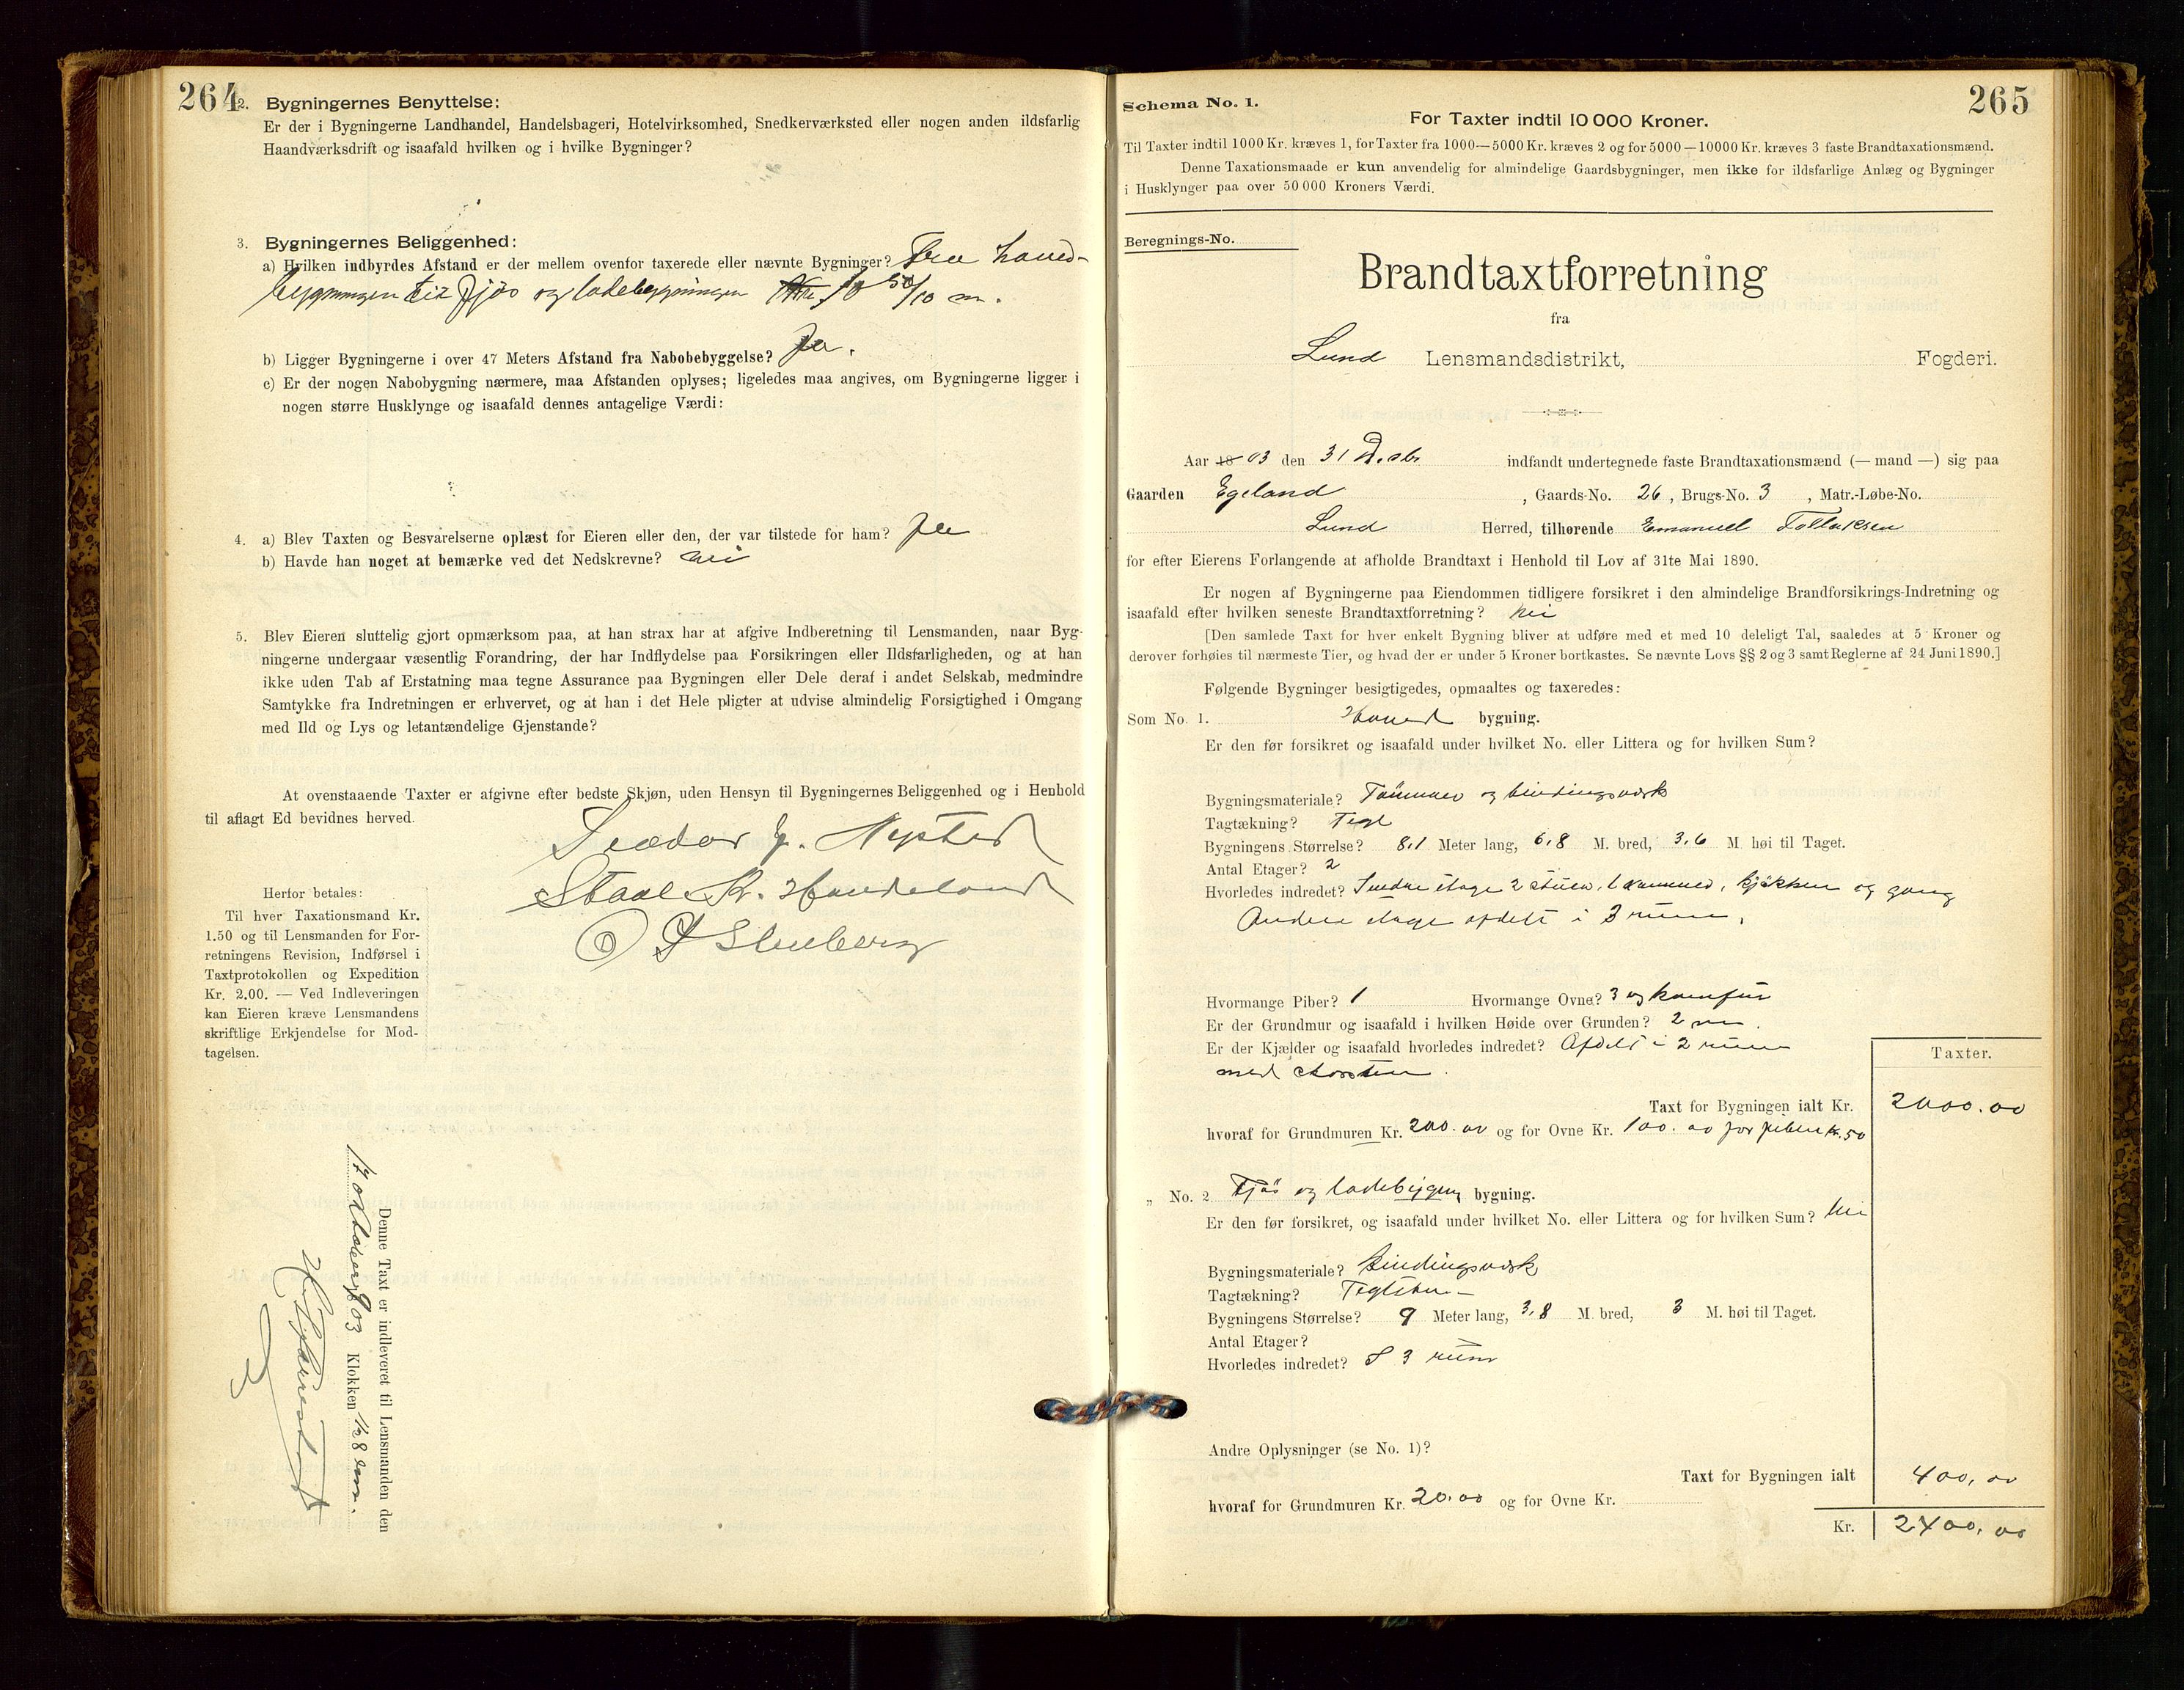 264
2. Bygningernes Benyttelse:
Er der i Bygningerne Landhandel, Handelsbageri, Hotelvirksomhed, Snedkerværksted eller nogen anden ildsfarlig
Haandværksdrift og isaafald hvilken og i hvilke Bygninger?
3. Bygningernes Beliggenhed:
a) Hvilken indbyrdes Afstand er der mellem ovenfor taxerede eller nævnte Bygninger? Fra hoved-
bygningen til fjös og ladebygningen 50/10 m.
b) Ligger Bygningerne i over 47 Meters Afstand fra Nabobebyggelse? Ja.
c) Er der nogen Nabobygning nærmere, maa Afstanden oplyses; ligeledes maa angives, om Bygningerne ligger i
nogen større Husklynge og isaafald dennes antagelige Værdi:
4. a) Blev Taxten og Besvarelserne oplæst for Eieren eller den, der var tilstede for ham? Ja
b) Havde han noget at bemærke ved det Nedskrevne? nei
5. Blev Eieren sluttelig gjort opmærksom paa, at han strax har at afgive Indberetning til Lensmanden, naar Byg-
ningerne undergaar væsentlig Forandring, der har Indflydelse paa Forsikringen eller Ildsfarligheden, og at han
ikke uden Tab af Erstatning maa tegne Assurance paa Bygningen eller Dele deraf i andet Selskab, medmindre
Samtykke fra Indretningen er erhvervet, og at han i det Hele pligter at udvise almindelig Forsigtighed i Omgang
med Ild og Lys og letantændelige Gjenstande?
At ovenstaaende Taxter er afgivne efter bedste Skjøn, uden Hensyn til Bygningernes Beliggenhed og i Henhold
til aflagt Ed bevidnes herved.
Teodor J. Nysted
Staale Kr. Haudeland
Herfor betales:
Til hver Taxationsmand Kr.
1.50 og til Lensmanden for For-
retningens Revision, Indførsel i
Taxtprotokollen og Expedition
Kr. 2.00. — Ved Indleveringen
kan Eieren kræve Lensmandens
skriftlige Erkjendelse for Mod-
tagelsen.
Denne Taxt er indleveret til Lensmanden den
17 Oktober 1903 Klokken 1/2 8 em.
265
Schema No. 1.
For Taxter indtil 10 000 Kroner.
Til Taxter indtil 1000 Kr. kræves 1, for Taxter fra 1000—5000 Kr. kræves 2 og for 5000—10000 Kr. kræves 3 faste Brandtaxationsmænd.
Denne Taxationsmaade er kun anvendelig for almindelige Gaardsbygninger, men ikke for ildsfarlige Anlæg og Bygninger
i Husklynger paa over 50 000 Kroners Værdi.
Beregnings-No.
Brandtaxtforretning
fra
Lund Lensmandsdistrikt, Fogderi.
Aar 18 03 den 31 indfandt undertegnede faste Brandtaxationsmænd (— mand —) sig paa
Gaarden Egeland, Gaards-No. 26, Brugs-No. 3, Matr.-Løbe-No.
Lund Herred, tilhørende Emanuel Tollaksen
for efter Eierens Forlangende at afholde Brandtaxt i Henhold til Lov af 31te Mai 1890.
Er nogen af Bygningerne paa Eiendommen tidligere forsikret i den almindelige Brandforsikrings-Indretning og
isaafald efter hvilken seneste Brandtaxtforretning? Nei
[Den samlede Taxt for hver enkelt Bygning bliver at udføre med et med 10 deleligt Tal, saaledes at 5 Kroner og
derover forhøies til nærmeste Tier, og hvad der er under 5 Kroner bortkastes. Se nævnte Lovs §§ 2 og 3 samt Reglerne af 24 Juni 1890.]
Følgende Bygninger besigtigedes, opmaaltes og taxeredes:
Som No. 1. Hoved bygning.
Er den før forsikret og isaafald under hvilket No. eller Littera og for hvilken Sum?
Bygningsmateriale? Tömmer og bindingsværk
Tagtækning? Tegl
Bygningens Størrelse? 8,1 Meter lang, 6,8 M. bred, 3,6 M. høi til Taget.
Antal Etager? 2
Hvorledes indredet? Indre etage 2 stuer, 1 kammer, kjökken og gang
Anden etage afdelt i 3 rum.
Hvormange Piber? 1 Hvormange Ovne? 3 og komfur
Er der Grundmur og isaafald i hvilken Høide over Grunden? 2 m.
Er der Kjælder og isaafald hvorledes indredet? Afdelt i 2 rum
med skorsten.
Taxter.
Taxt for Bygningen ialt Kr. 2000.00
hvoraf for Grundmuren Kr. 200.00 og for Ovne Kr. 100.00 for piben Kr. 50
„ No. 2 Fjös og ladebygn. bygning.
Er den før forsikret, og isaafald under hvilket No. eller Littera og for hvilken Sum? Nei
Bygningsmateriale? Bindingsværk
Tagtækning? Teglsten
Bygningens Størrelse? 9 Meter lang, 3,8 M. bred, 3 M. høi til Taget.
Antal Etager?
Hvorledes indredet? I 3 rum
Andre Oplysninger (se No. 1)?
Taxt for Bygningen ialt 400,00
hvoraf for Grundmuren Kr. 20.00 og for Ovne Kr.
Kr. 2400,00